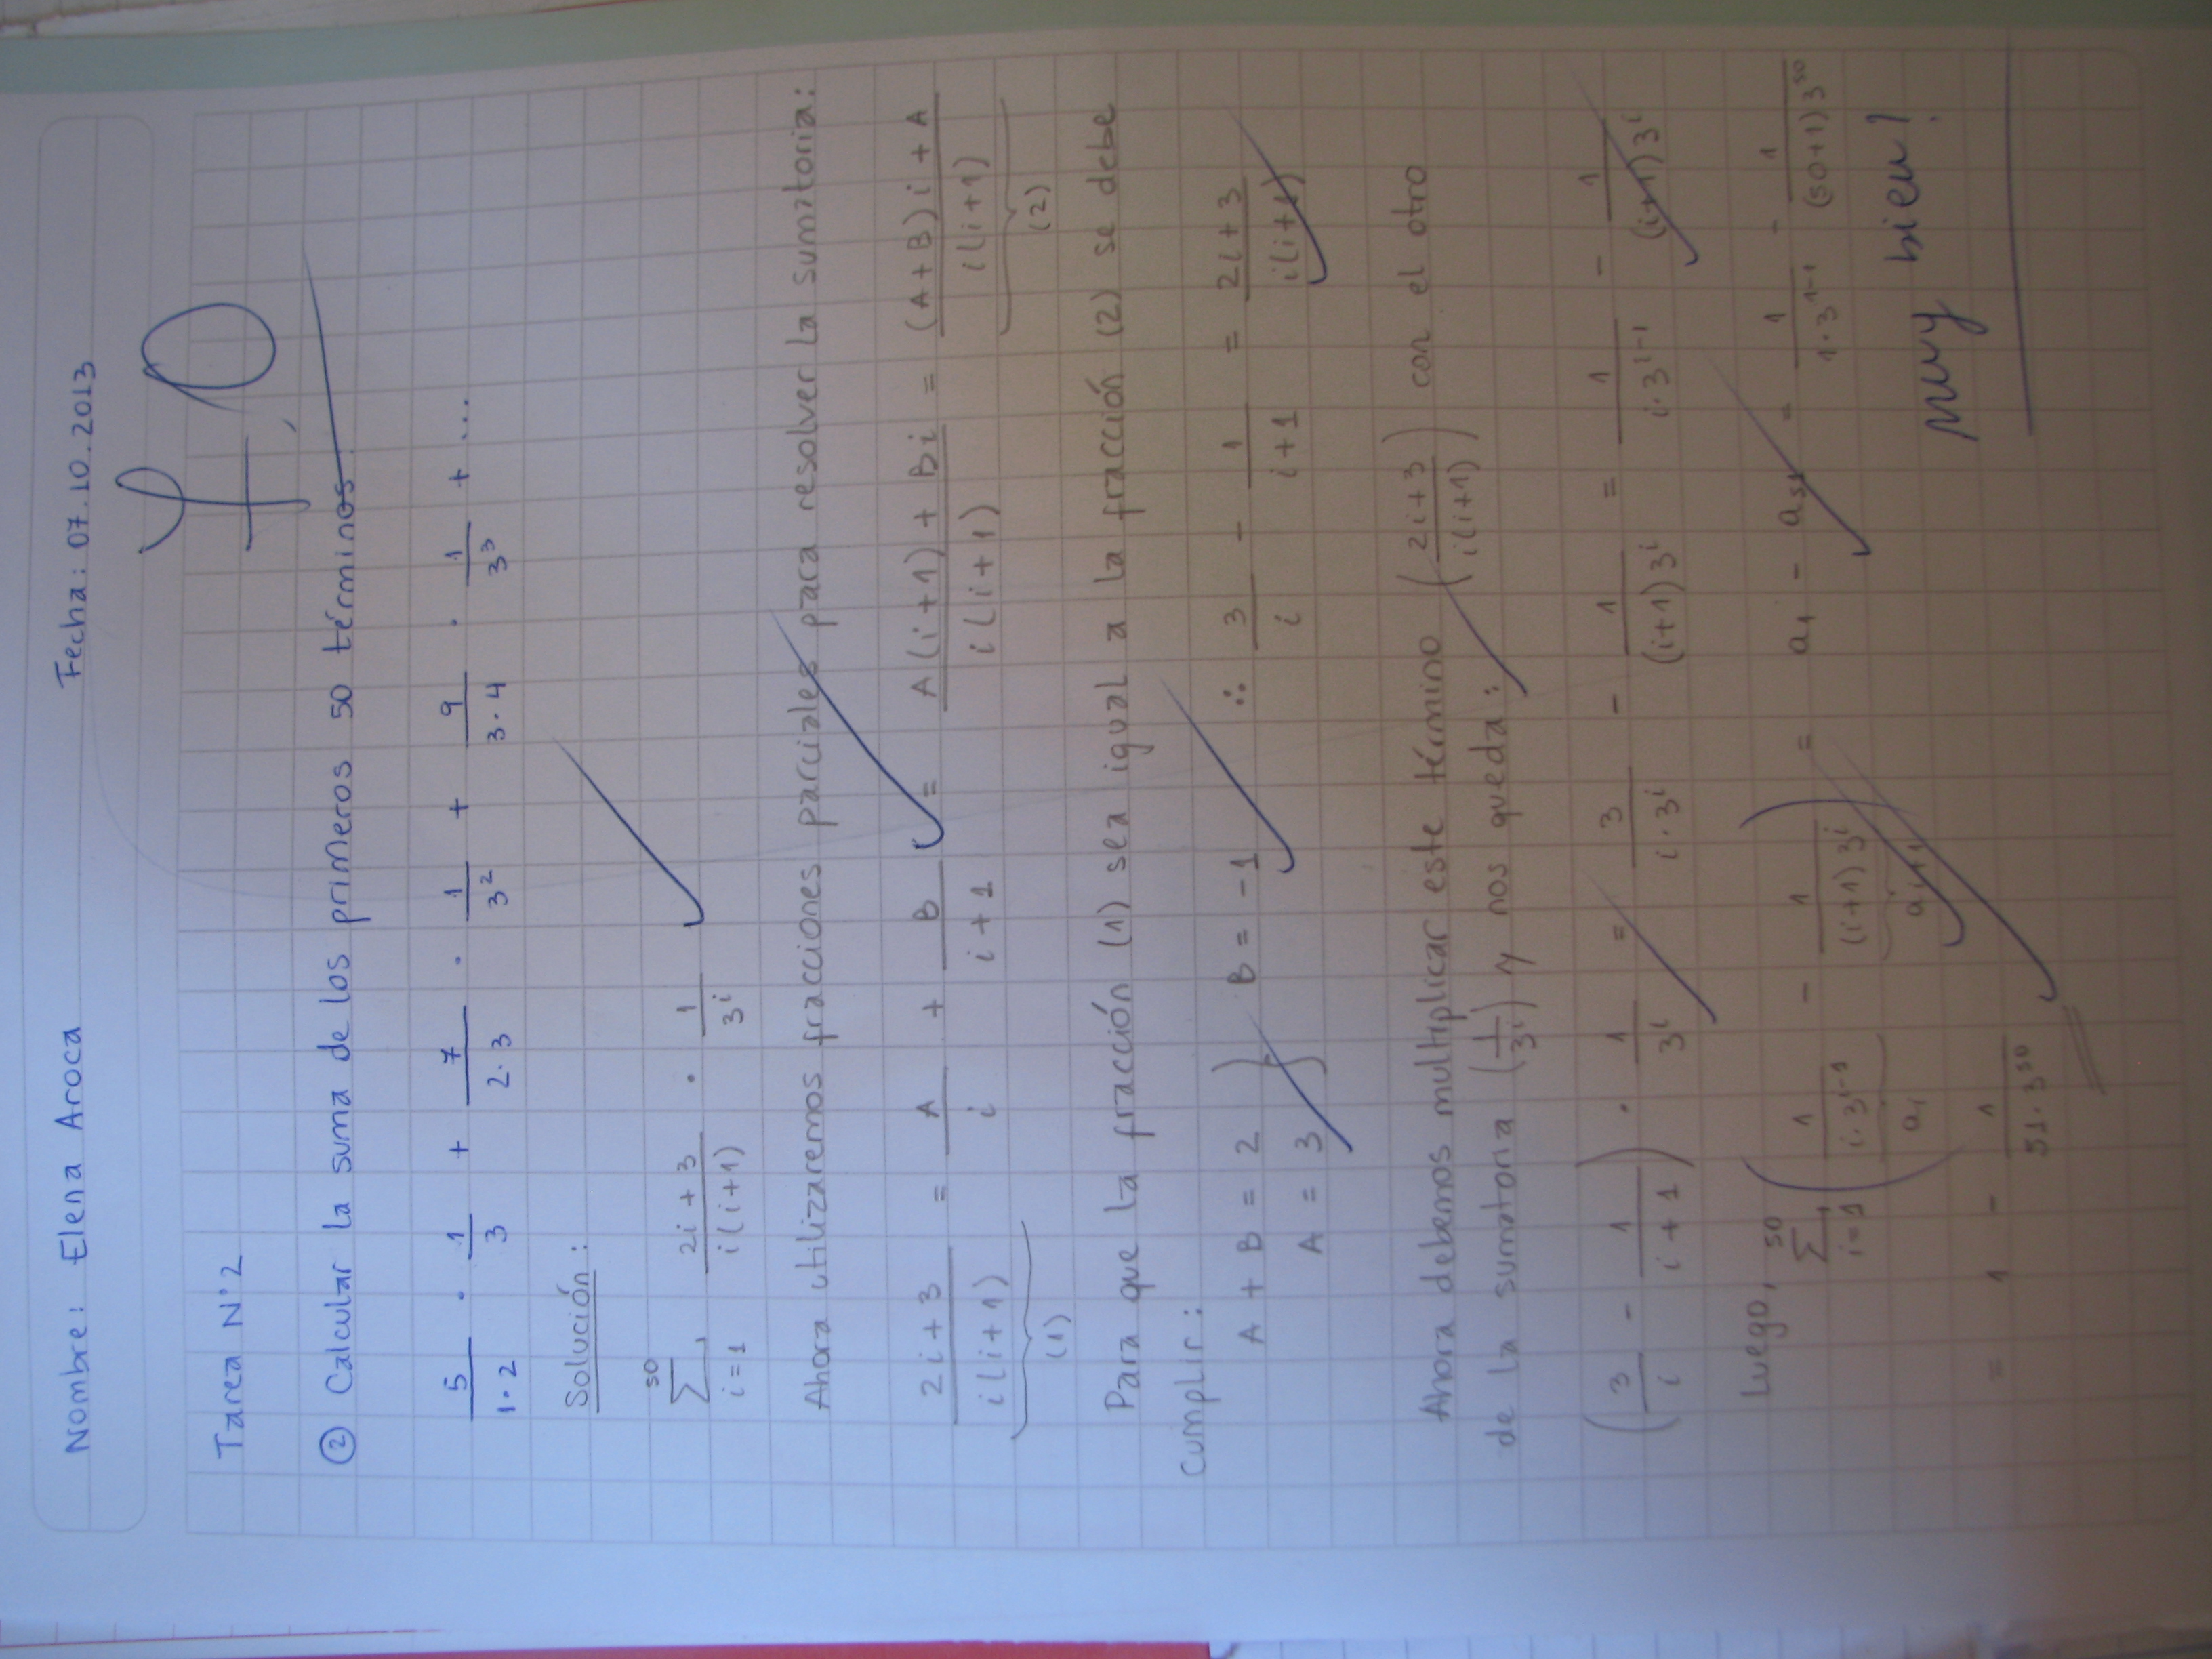 Nombre: Elena Aroca Fecha: 07.10.2013
Tarea N°2
7,0
② Calcular la suma de los primeros 50 términos
5/(1·2) · 1/3 + 7/(2·3) · 1/3² + 9/(3·4) · 1/3³ + ...
Solución:
∑_{i=1}^{50} (2i+3)/(i(i+1)) · 1/3^i
Ahora utilizaremos fracciones parciales para resolver la sumatoria:
(2i+3)/(i(i+1)) = A/i + B/(i+1) = (A(i+1) + Bi)/(i(i+1)) = ((A+B)i + A)/(i(i+1))
(1) (2)
Para que la fracción (1) sea igual a la fracción (2) se debe
cumplir:
A + B = 2 } B = -1 ∴ 3/i - 1/(i+1) = (2i+3)/(i(i+1))
A = 3
Ahora debemos multiplicar este término ((2i+3)/(i(i+1))) con el otro
de la sumatoria (1/3^i) y nos queda:
(3/i - 1/(i+1)) · 1/3^i = 3/(i·3^i) - 1/((i+1)3^i) = 1/(i·3^{i-1}) - 1/((i+1)3^i)
Luego, ∑_{i=1}^{50} (1/(i·3^{i-1}) - 1/((i+1)3^i)) = a₁ - a₅₁ = 1/(1·3^{1-1}) - 1/((50+1)3^{50})
a₁ a_{i+1}
= 1 - 1/(51·3^{50})
muy bien!